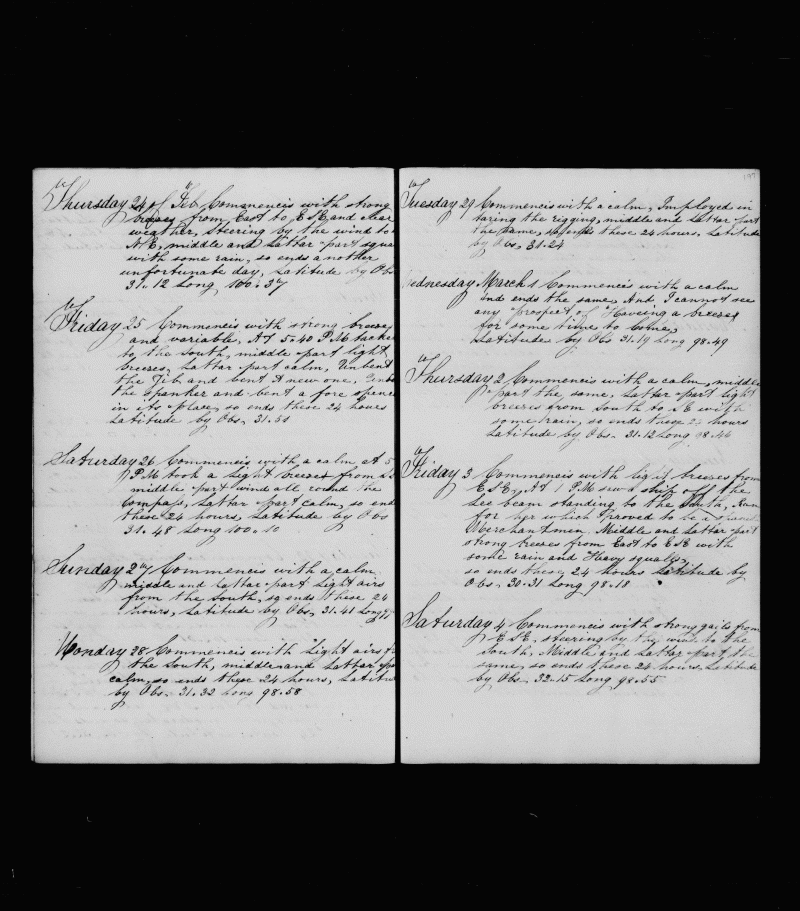 Thursday 24 of Feb Commencis with strong
breezes from East to E S E and clear
weather, Steering by the wind to
N E, middle and Lattar part squa
with some rain, so ends another
unfortunate day, Latitude by Obs
31.12 Long 100.37
Friday 25 Commencis with strong breezes
and variable, AT 5.40 P M tacke
to the South, middle part light
breezes, Lattar part calm, Unbent
the Jib and bent A new one, Unb
the Spanker and bent a fore spence
in its place, so ends these 24 hours
Latitude by Obs, 31.50
Saturday 26 Commencis with a calm at 5
P.M took a Light breezes from
middle part wind all round the
Compass, Lattar part calm, so end
these 24 hours, Latitude by Obs
31.48 Long 100.10
Sunday 27 Commencis with a calm
middle and Lattar part Light airs
from the South, so ends these 24
hours, Latitude by Obs, 31.41 Long
Monday 28 Commencis with Light airs f
the South, middle and Lattar pa
calm, so ends these 24 hours, Latitu
by Obs. 31.32 Long 98.58
Tuesday 29 Commencis with a calm, Imployed in
taring the rigging, middle and Lattar part
the same, so ends these 24 hours, Latitude
by Obs. 31.24
Wednesday March 1 Commencis with a calm
and ends the same And, I cannot see
any prospect of Haveing a breezes
for some time to come,
Latitudes by Obs 31.19 Long 98.49
Thursday 2 Commencis with a calm, middle
part the same, Lattar part light
breezes from South to SE with
some rain, so ends these 24 hours
Latitude by Obs. 31.12 Long 98.44
Friday 3 Commencis with light breezes from
E S E, AT 1 P M saw A ship off the
Lee beam standing to the South, Run
for her which proved to be a
Merchantmen. Middle and Lattar part
strong breezes from East to E S E with
some rain and Heavy squalls,
so ends these 24 hours Latitude by
Obs. 30.31 Long 98.18
Saturday 4 Commencis with strong gails from
E S E, steering by the wind to the
South, Middle and Lattar part, the
same, so ends these 24 hours, Latitude
by Obs. 32.15 Long 98.55